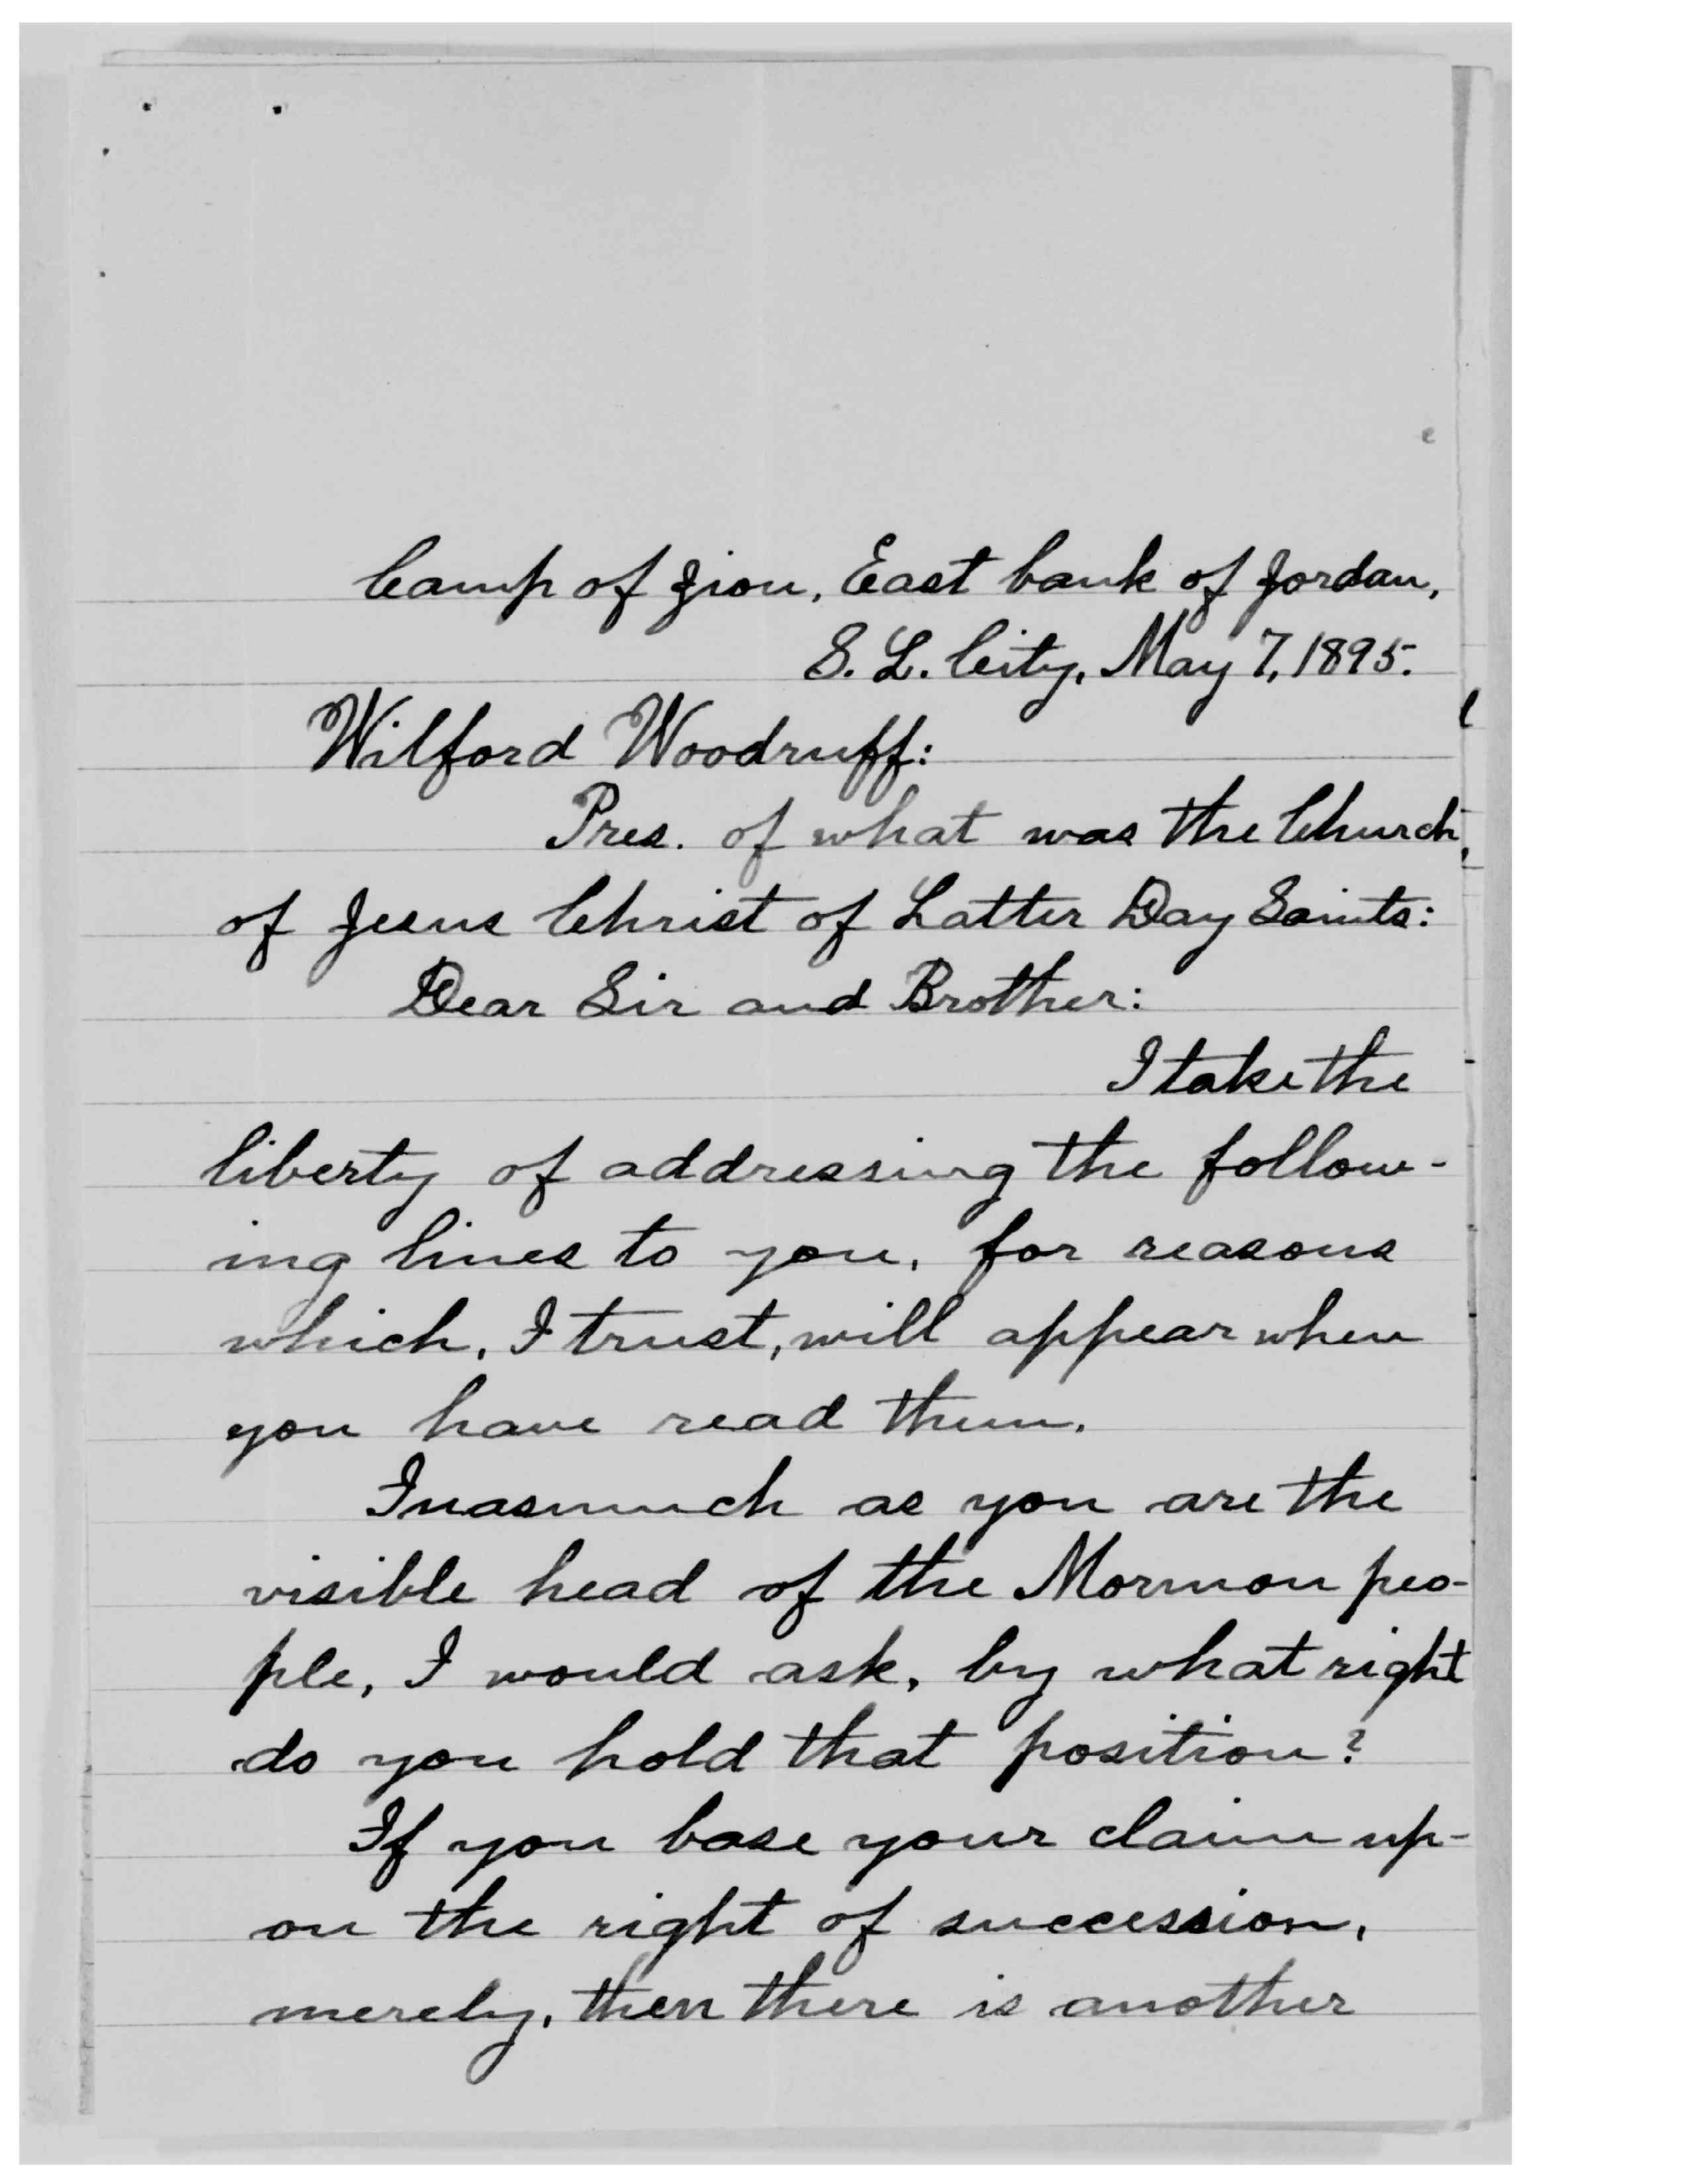 Camp of Zion, East bank of Jordan,
S. L. City, May 7, 1895.
Wilford Woodruff:
Pres. of what was the Church,
of Jesus Christ of Latter Day Saints:
Dear Sir and Brother:
I take the
liberty of addressing the follow-
ing lines to you, for reasons
which, I trust, will appear when
you have read them.
Inasmuch as you are the
visible head of the Mormon peo-
ple, I would ask, by what right
do you hold that position?
If you base your claim up-
on the right of succession,
merely, then there is another